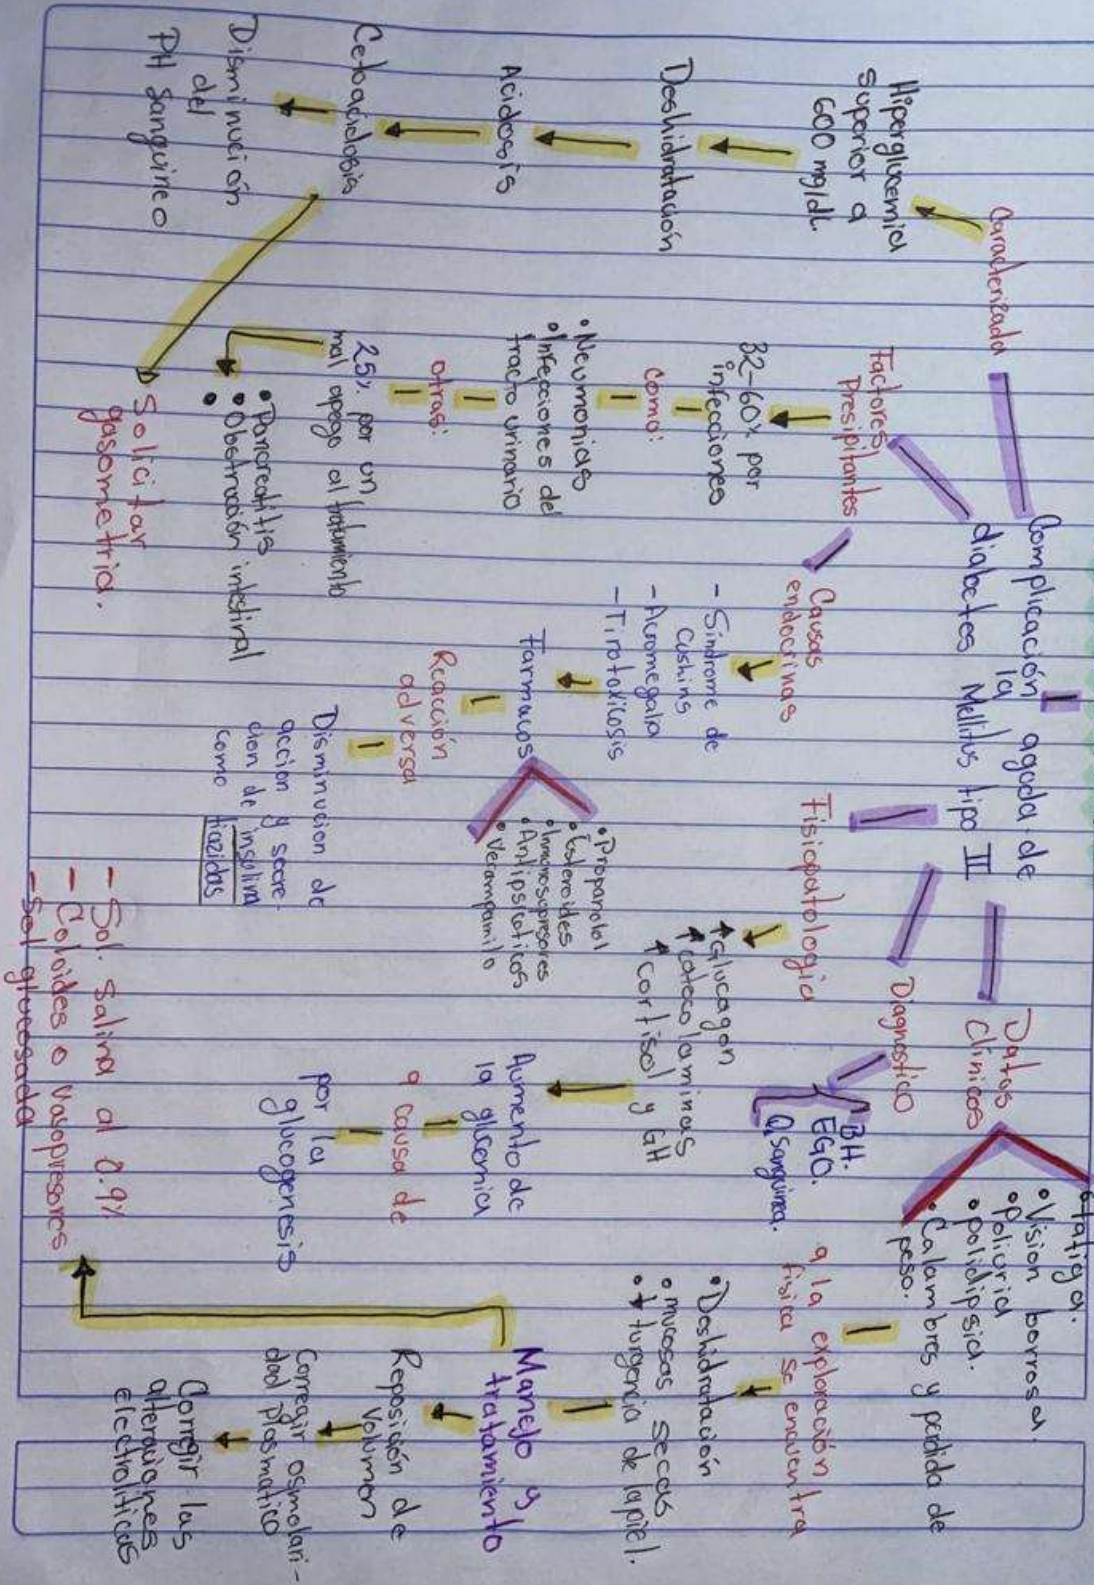 Complicación aguda de
la
diabetes Mellitus tipo II
Caracterizada
Hiperglucemia
superior a
600 mg/dL
Deshidratación
Acidosis
Cetoacidosis
Disminución
del
PH Sanguineo
Solicitar
gasometria.
Factores
Presipitantes
32-60% por
infecciones
Como:
• Neumonias
• Infecciones del
tracto urinario
otras:
25% por un
mal apego al tratamiento
• Pancreatitis
• Obstrucción intestinal
•
Causas
endocrinas
- Sindrome de
Cushins
- Acromegala
- Tirotoxicosis
Farmacos
• Propanolol
• Esteroides
• Inmonosupresores
• Antipsicoticos
• Verampamilo
Reacción
adversa
Disminucion de
acción y secre-
cion de insulina
como tiazidas
Fisiopatologia
↑ Glucagon
↑ Catecolaminas
↑ Cortisol y GH
Aumento de
la glicemia
a causa de
por la
glucogenesis
Diagnostico
BH.
EGO.
Q. Sanguinea.
Datos
Clinicos
• Fatiga.
• Vision borrosa.
• Poliuria
• polidipsia.
• Calambres y perdida de
peso.
a la exploración
fisica se encuentra
• Deshidratación
• mucosas secas
• ↓ turgencia de la piel.
Manejo y
tratamiento
Reposición de
volumen
Corregir osmolari-
dad plasmatico
Corregir las
alteraciones
electroliticas
- Sol. Salina al 0.9%
- Coloides o vasopresores
- Sol glucosada